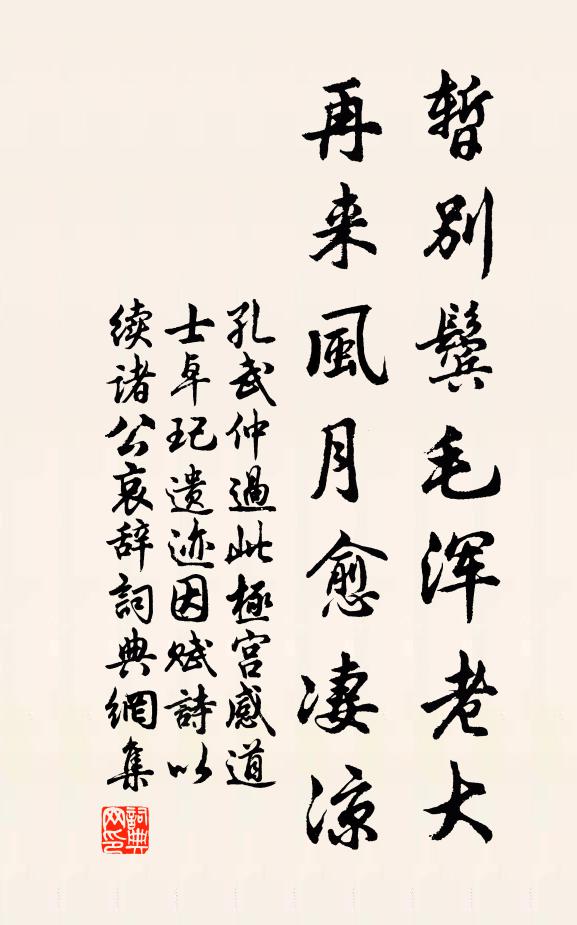 暫別鬓毛浑老大
再来風月愈凄凉
孔武仲過此極宫感道
士卓玘遗迹因赋詩以
续诸公哀辞詞典網集
詞典
网印